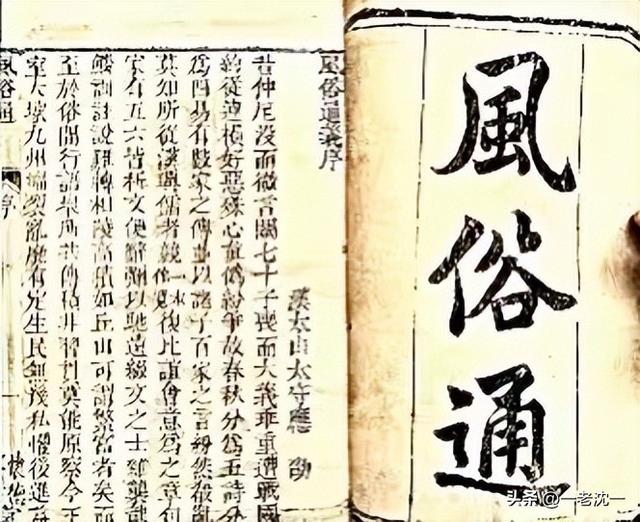 風俗通
風俗通義序
漢太山太守應 劭
昔仲尼沒而微言闕七十子喪而大義乖重遭戰國
約從連橫好惡殊心真偽紛爭故春秋分爲五詩分
爲四易有數家之傳並以諸子百家之言紛然殽亂
莫知所從漢興儒者競復比誼會意爲之章句
家有五六皆析文便辭彌以馳遠綴文之士雜襲龍
鱗訓註說難轉相陵高積如丘山可謂繁富者矣而
至於俗間行語眾所共傳積非習貫莫能原察今王
室大壞九州幅裂亂靡有定生民無幾私懼後進益
風俗通
序
头条 @一老沈一